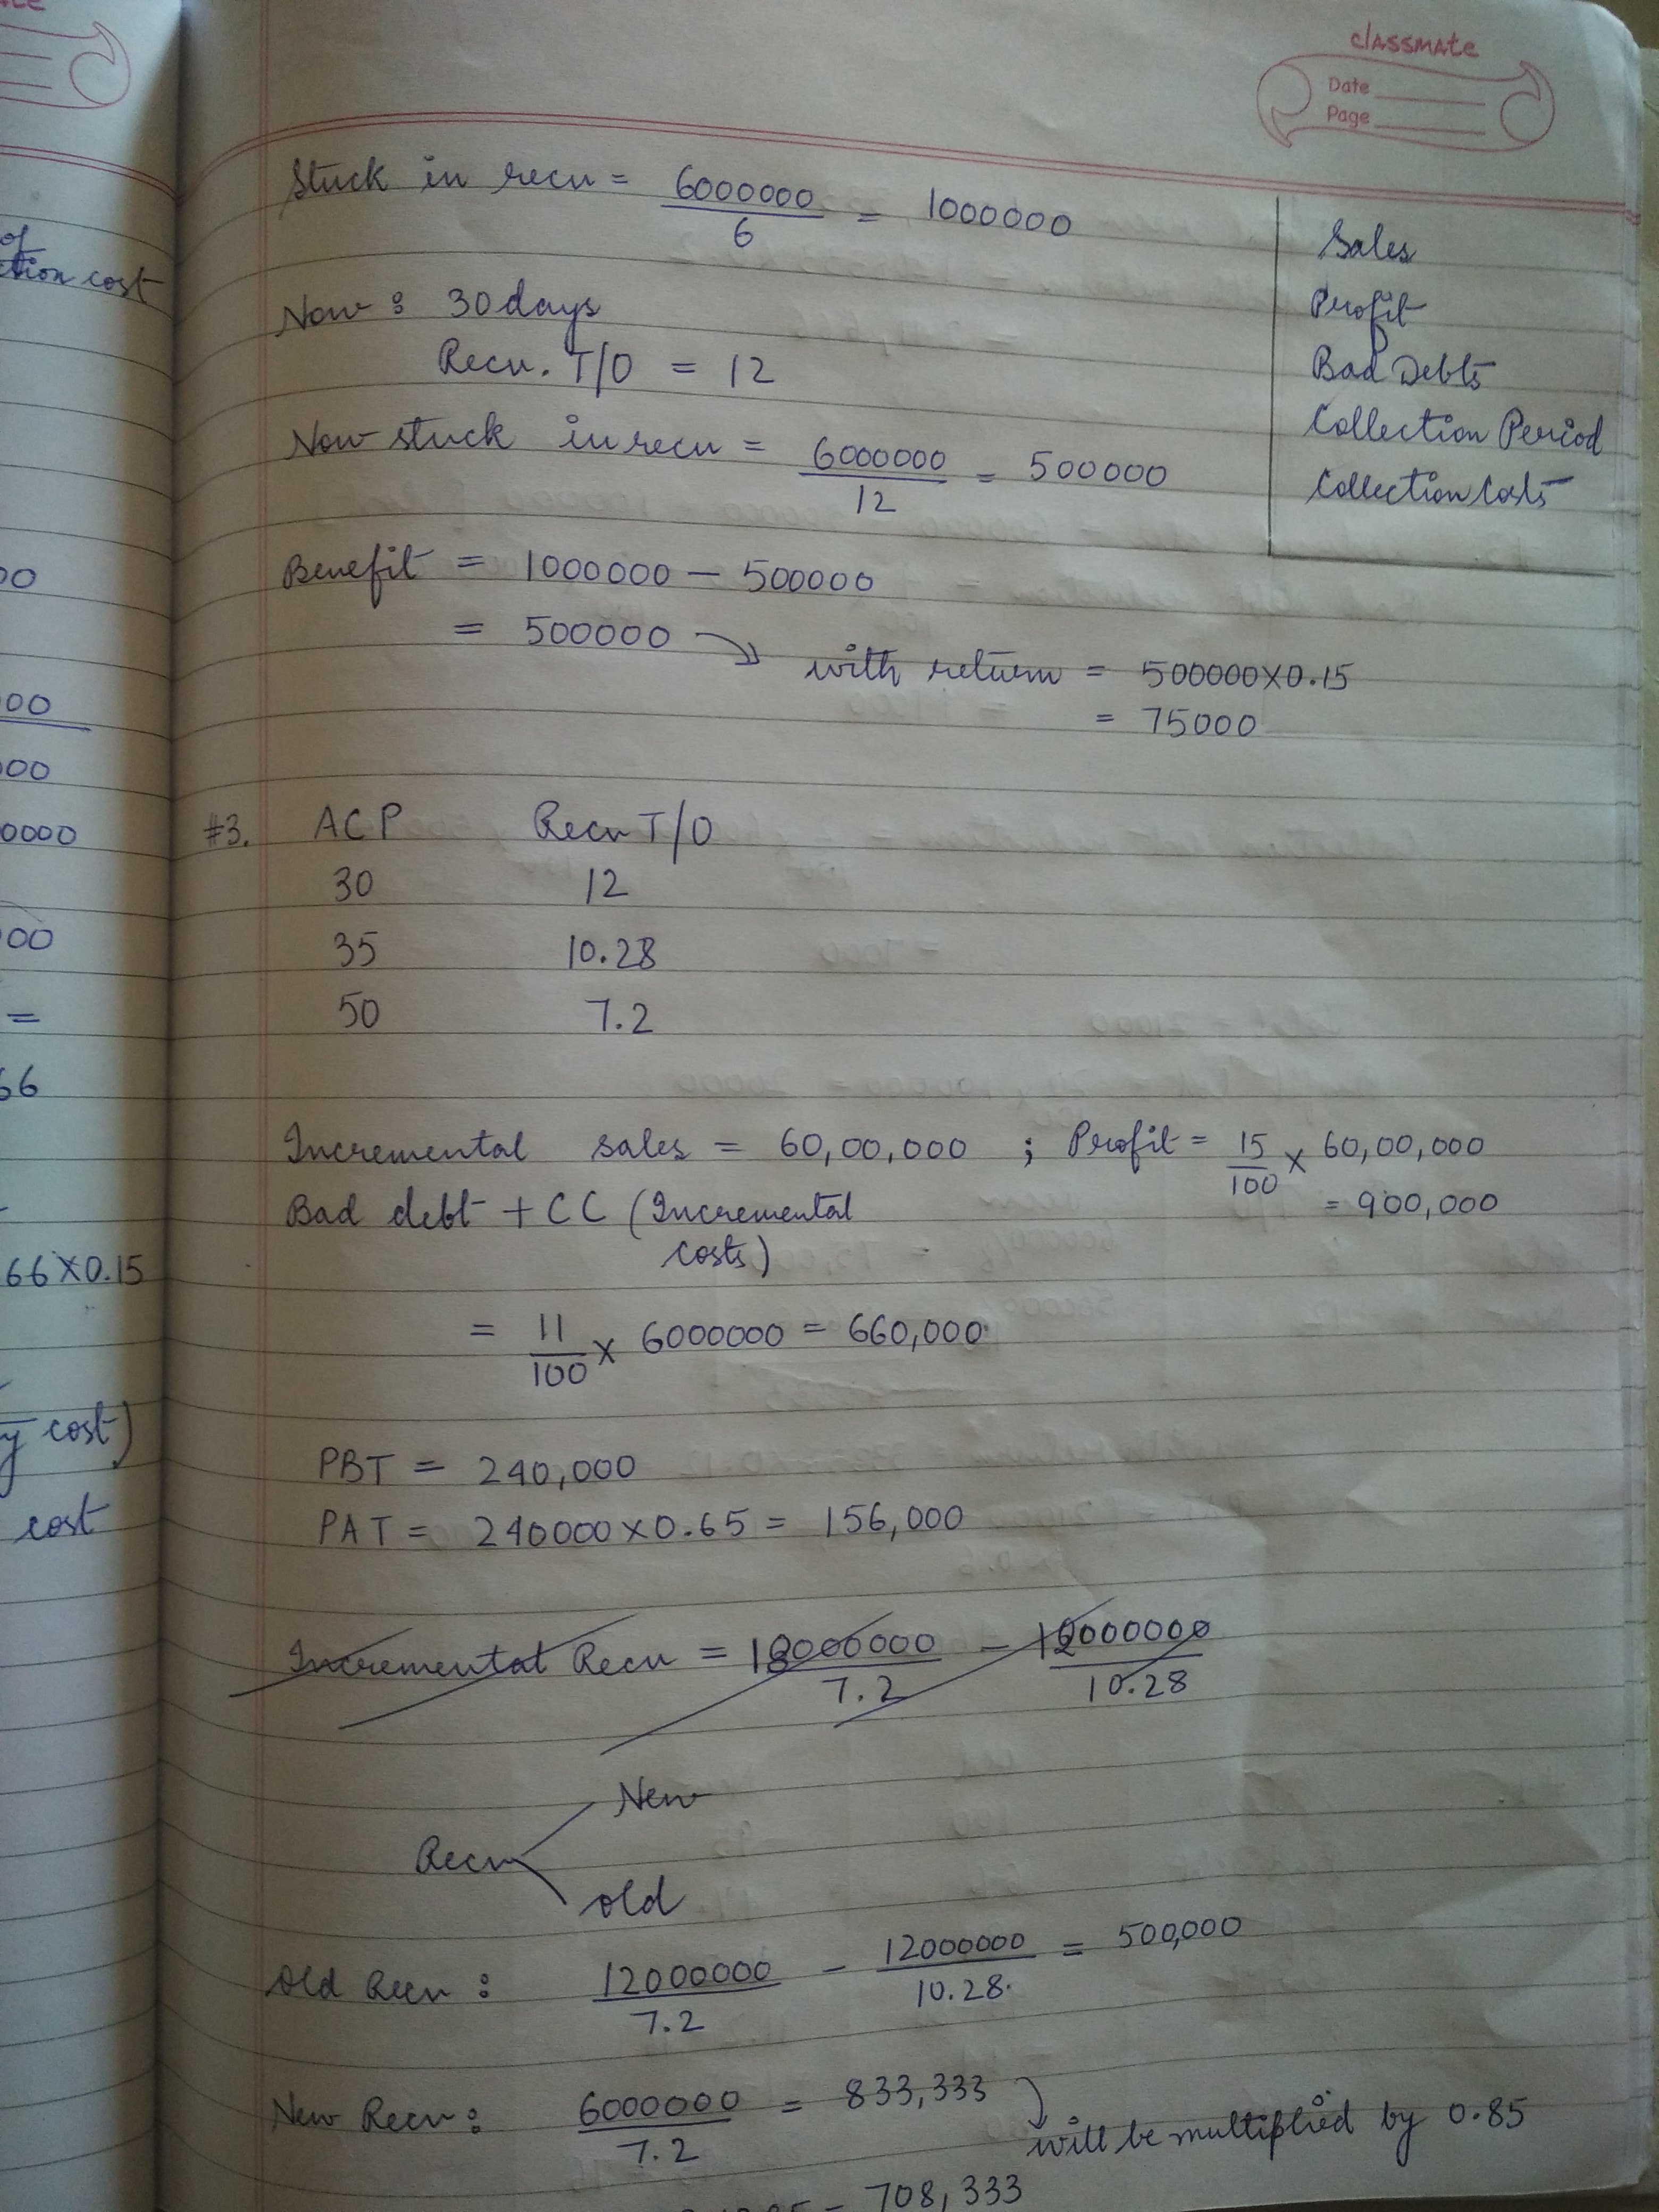 classmate
Date
Page
Stuck in recv = 6000000 / 6 = 1000000
Now : 30 days
Recv. T/O = 12
Now stuck in recv = 6000000 / 12 = 500000
Benefit = 1000000 - 500000
= 500000 → with return = 500000 X 0.15
= 75000
Sales
Profit
Bad Debts
Collection Period
Collection Costs
#3. ACP Recv T/O
30 12
35 10.28
50 7.2
Incremental sales = 60,00,000 ; Profit = 15/100 x 60,00,000
= 900,000
Bad debt + CC (Incremental
costs)
= 11/100 x 6000000 = 660,000
PBT = 240,000
PAT = 240000 X 0.65 = 156,000
Incremental Recv = 18000000 / 7.2 - 12000000 / 10.28
New
Recv
Old
Old Recv : 12000000 / 7.2 - 12000000 / 10.28. = 500,000
New Recv : 6000000 / 7.2 = 833,333
will be multiplied by 0.85
= 708,333
of
ction cost
00
00
00
0000
00
=
66
66 X 0.15
y cost)
cost